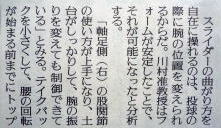 スライダーの曲がり方を
自在に操るのは、投球の
際に腕の位置を変えられ
るからだ。川村准教授はフ
ォームが安定したことで、
それが可能になったと分析
する。
「軸足側（右）の股関節
の使い方が上手になり、土
台がしっかりして、腕の振
りを変えても制御できて
いる」とみる。テイクバッ
クを小さくして、腰の回転
が始まる前までにトップ